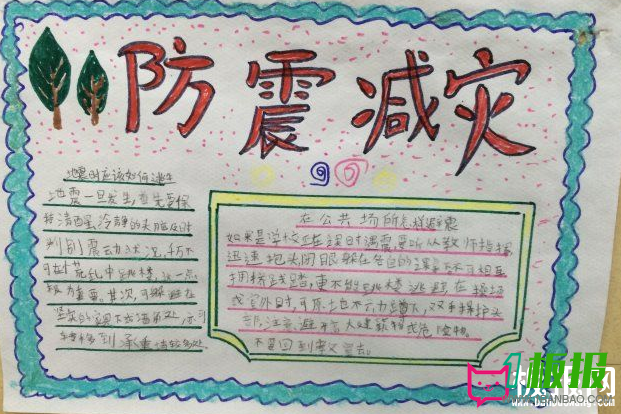 防震减灾
地震时应该如何逃生
地震一旦发生,首先要保
持清醒,冷静的头脑及时
判别震动状况,千万不
可在慌乱中跳楼,这一点
极为重要,其次,可躲避在
坚实的家具下或墙角处,亦可
转移到承重墙较多处
在公共场所怎样避震
如果是学校正在课时遇震,要听从教师指挥
迅速抱头闭眼躲在各自的课桌下
拥挤践踏,更不能跳楼逃避,在操场
或室外时,可原地不动蹲下,双手保护头
部,注意避开高大建筑物或危险物。
不要回到教室去。
板报
BANBAO.COM